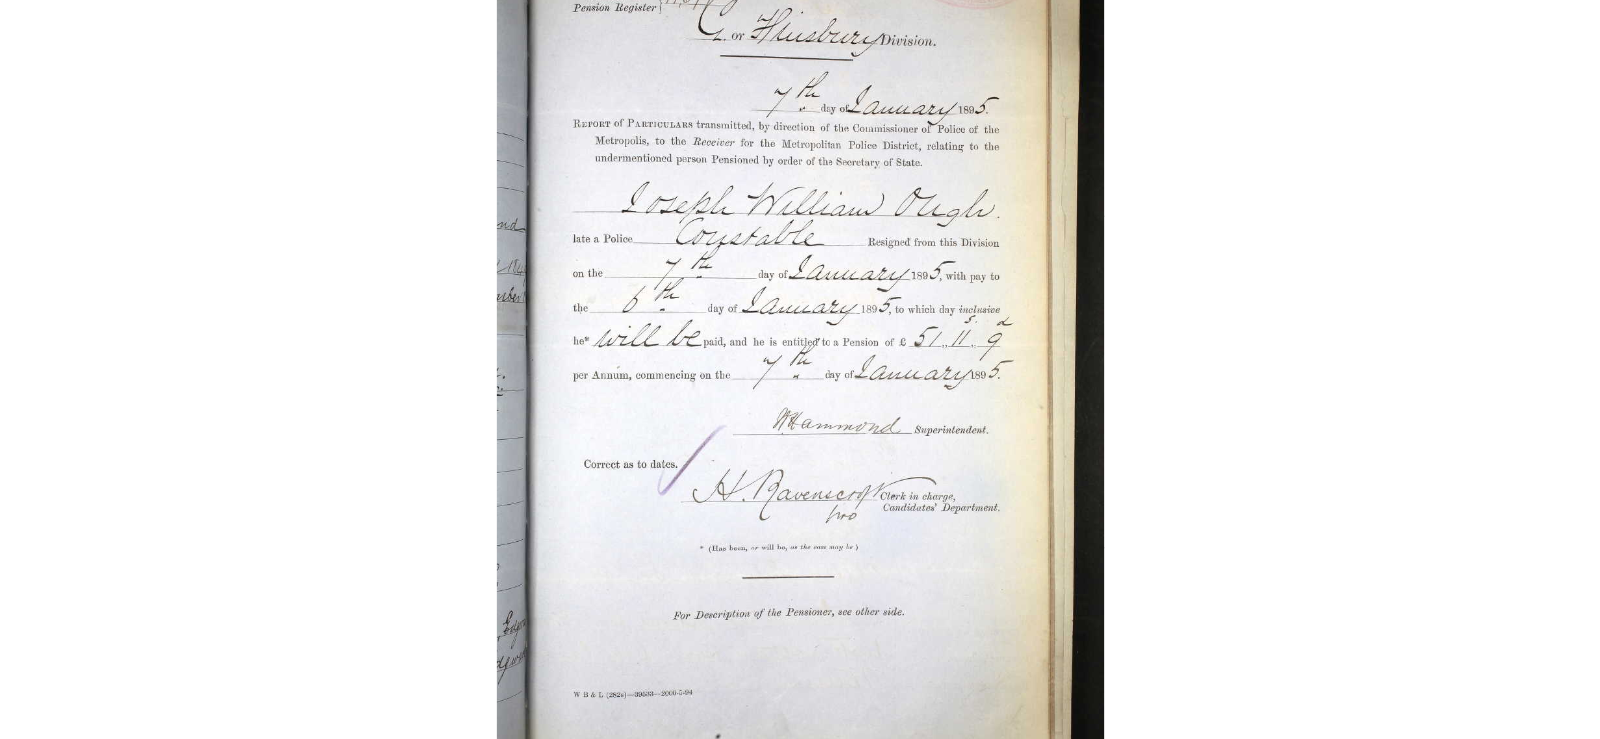 Pension Register
G. or Finsbury Division.
7th day of January 1895.
REPORT of PARTICULARS transmitted, by direction of the Commissioner of Police of the
Metropolis, to the Receiver for the Metropolitan Police District, relating to the
undermentioned person Pensioned by order of the Secretary of State.
Joseph William Ough.
late a Police Constable Resigned from this Division
on the 7th day of January 1895, with pay to
the 6th day of January 1895, to which day inclusive
he* will be paid, and he is entitled to a Pension of £ 51.. 11s.. 9d
per Annum, commencing on the 7th day of January 1895.
W Hammond Superintendent.
Correct as to dates.
H. Ravenscroft Clerk in charge,
pro Candidates' Department.
* (Has been, or will be, as the case may be.)
For Description of the Pensioner, see other side.
W B & L (282s)—39633—2000-5-94